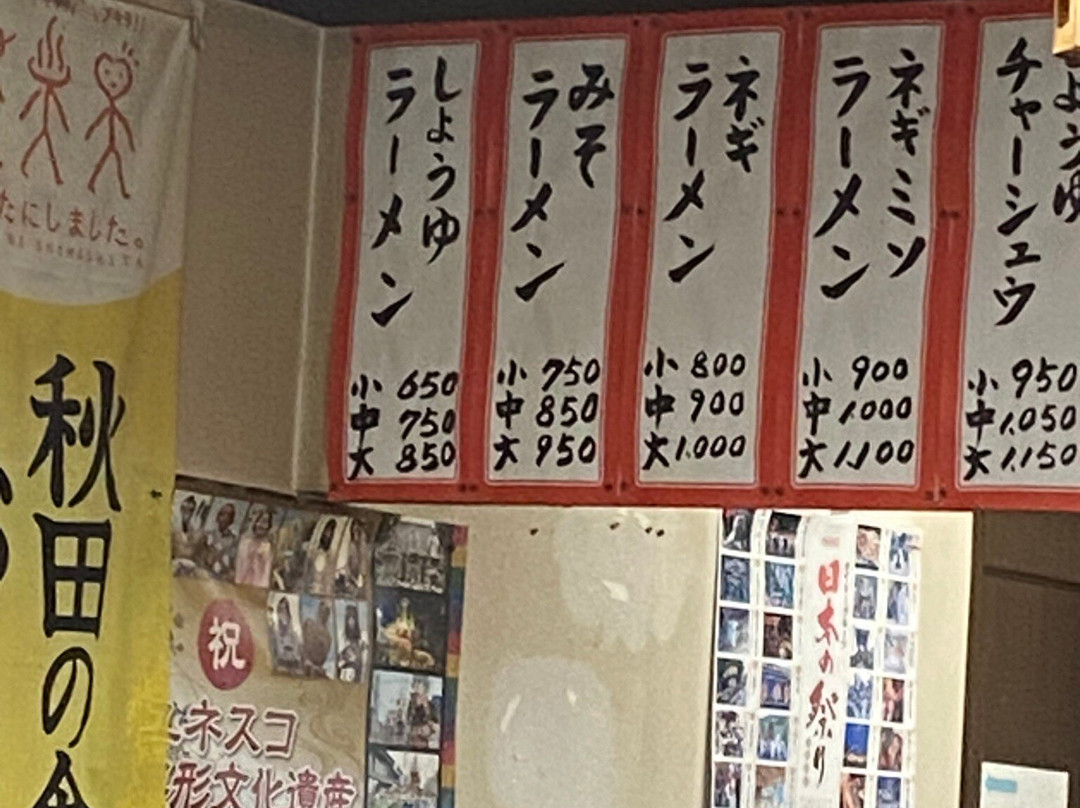 しょうゆ
ラーメン
小 650
中 750
大 850
みそ
ラーメン
小 750
中 850
大 950
ネギ
ラーメン
小 800
中 900
大 1.000
ネギミソ
ラーメン
小 900
中 1.000
大 1.100
ょうゆ
チャーシュウ
小 950
中 1.050
大 1.150
たにしました。
秋田の
祝
ネスコ
形文化遺産
日本の祭り